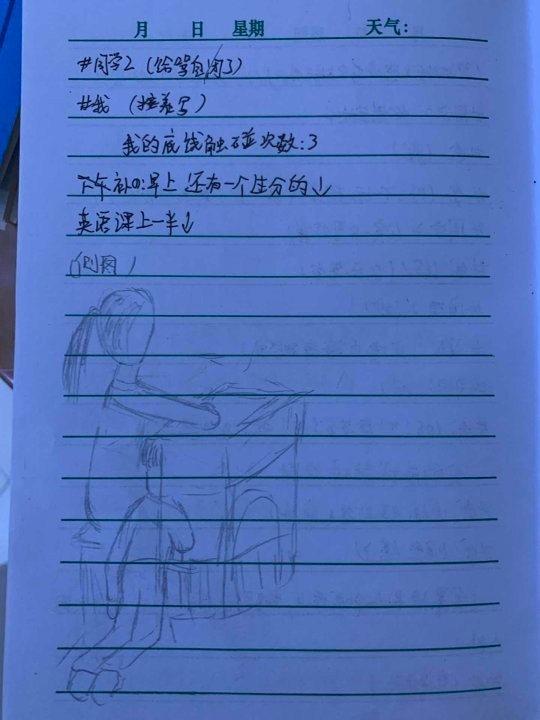 月 日 星期 天气:
#同学2 (给坚自闭了)
#我 (接着写)
我的底线触碰次数:3
下午补:早上 还有一个生分的↓
英语课上一半↓
(侧图)